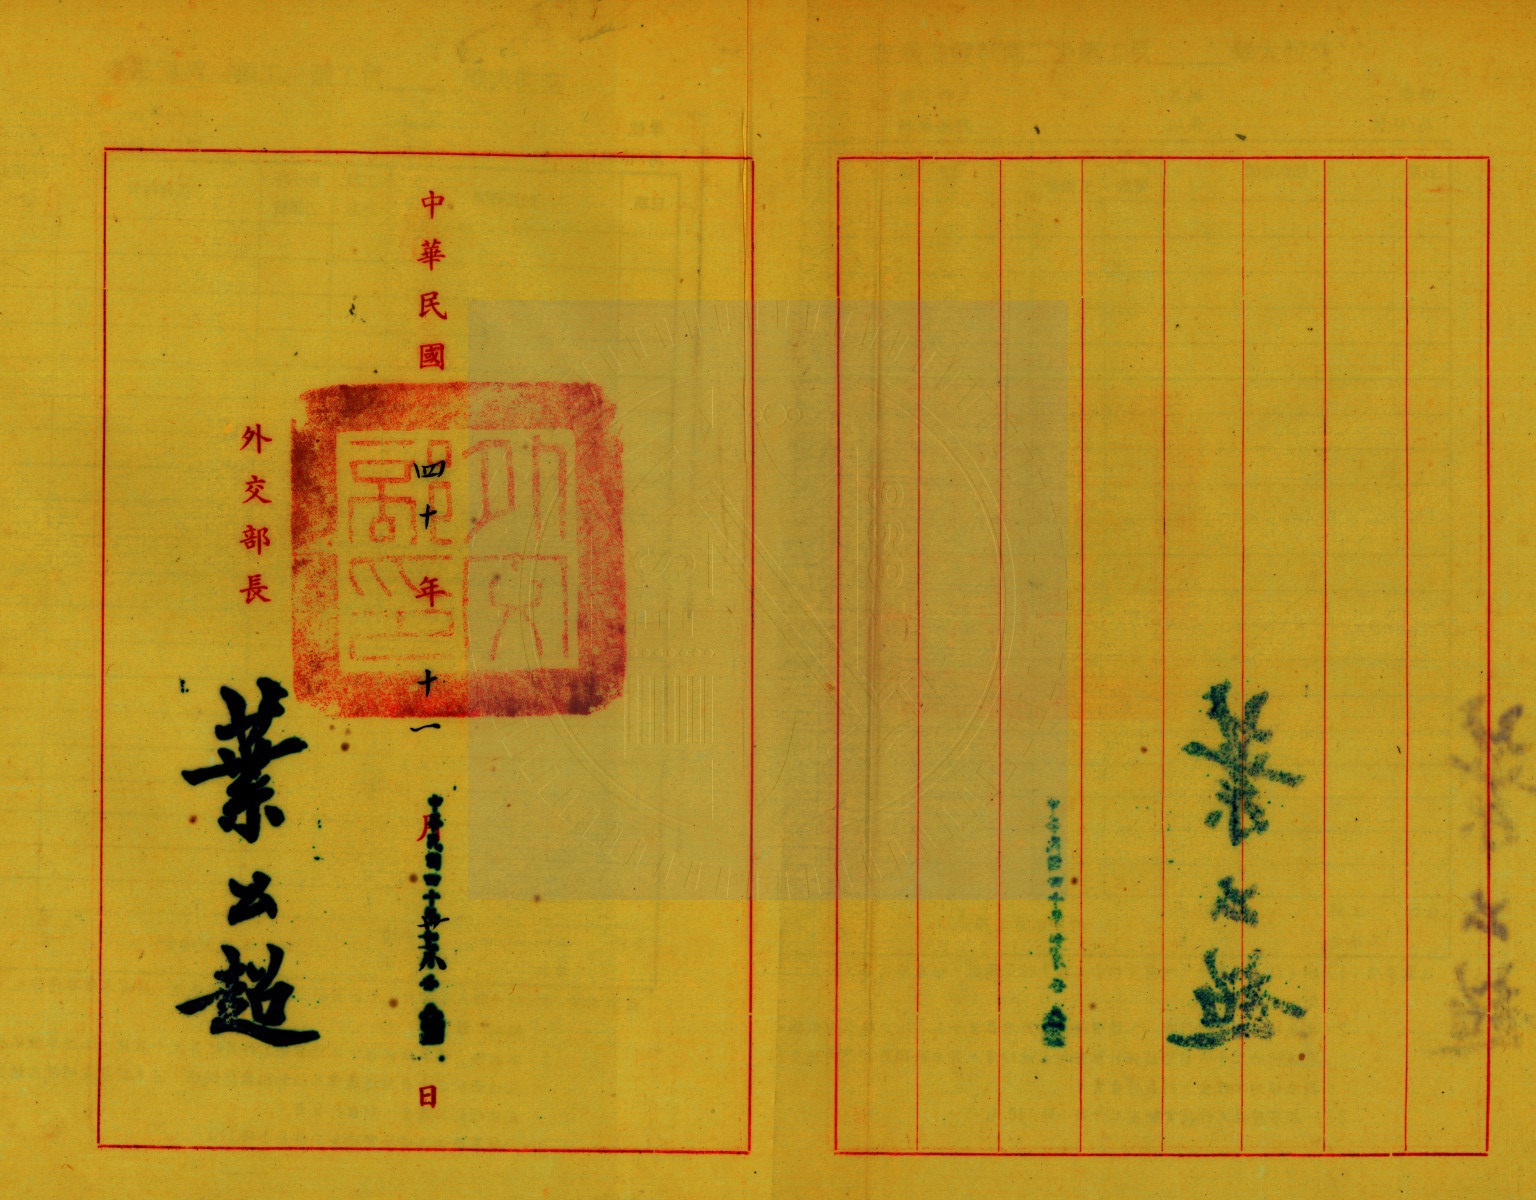 中華民國四十年十一月日
外交部長
葉公超
外交部印